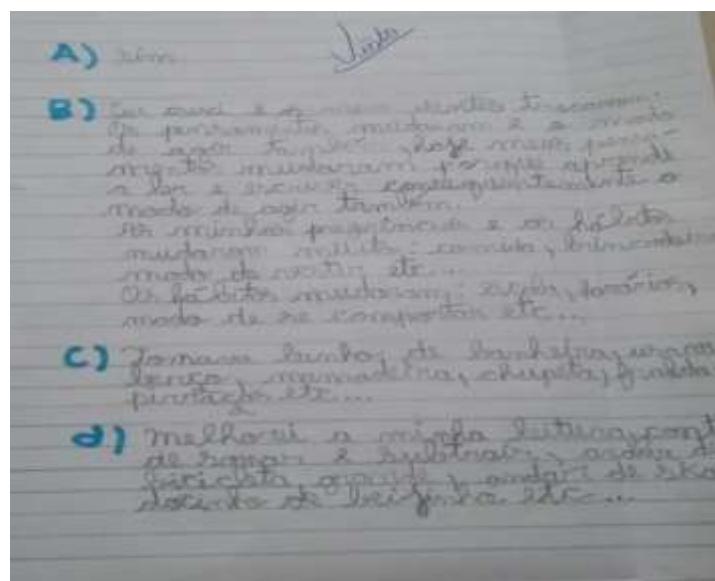 Visto
A) Sim
B) Eu cresci e os meus dentes trocaram.
Os pensamentos mudaram e o modo
de agir também, hoje meus pensa-
mentos mudaram porque aprendi
a ler e escrever consequentemente o
modo de agir também.
As minhas preferências e os hábitos
mudaram muito: comida, brincadeiras
modo de vestir etc...
Os hábitos mudaram: horários,
modo de se comportar etc...
C) Tomava banho, de banheira,
berço, mamadeira, chupeta, fralda
etc...
d) melhorei a minha leitura, cont
de somar e subtrair, andar d
bicicleta grande, andar de ska
docinho de beijinho etc...